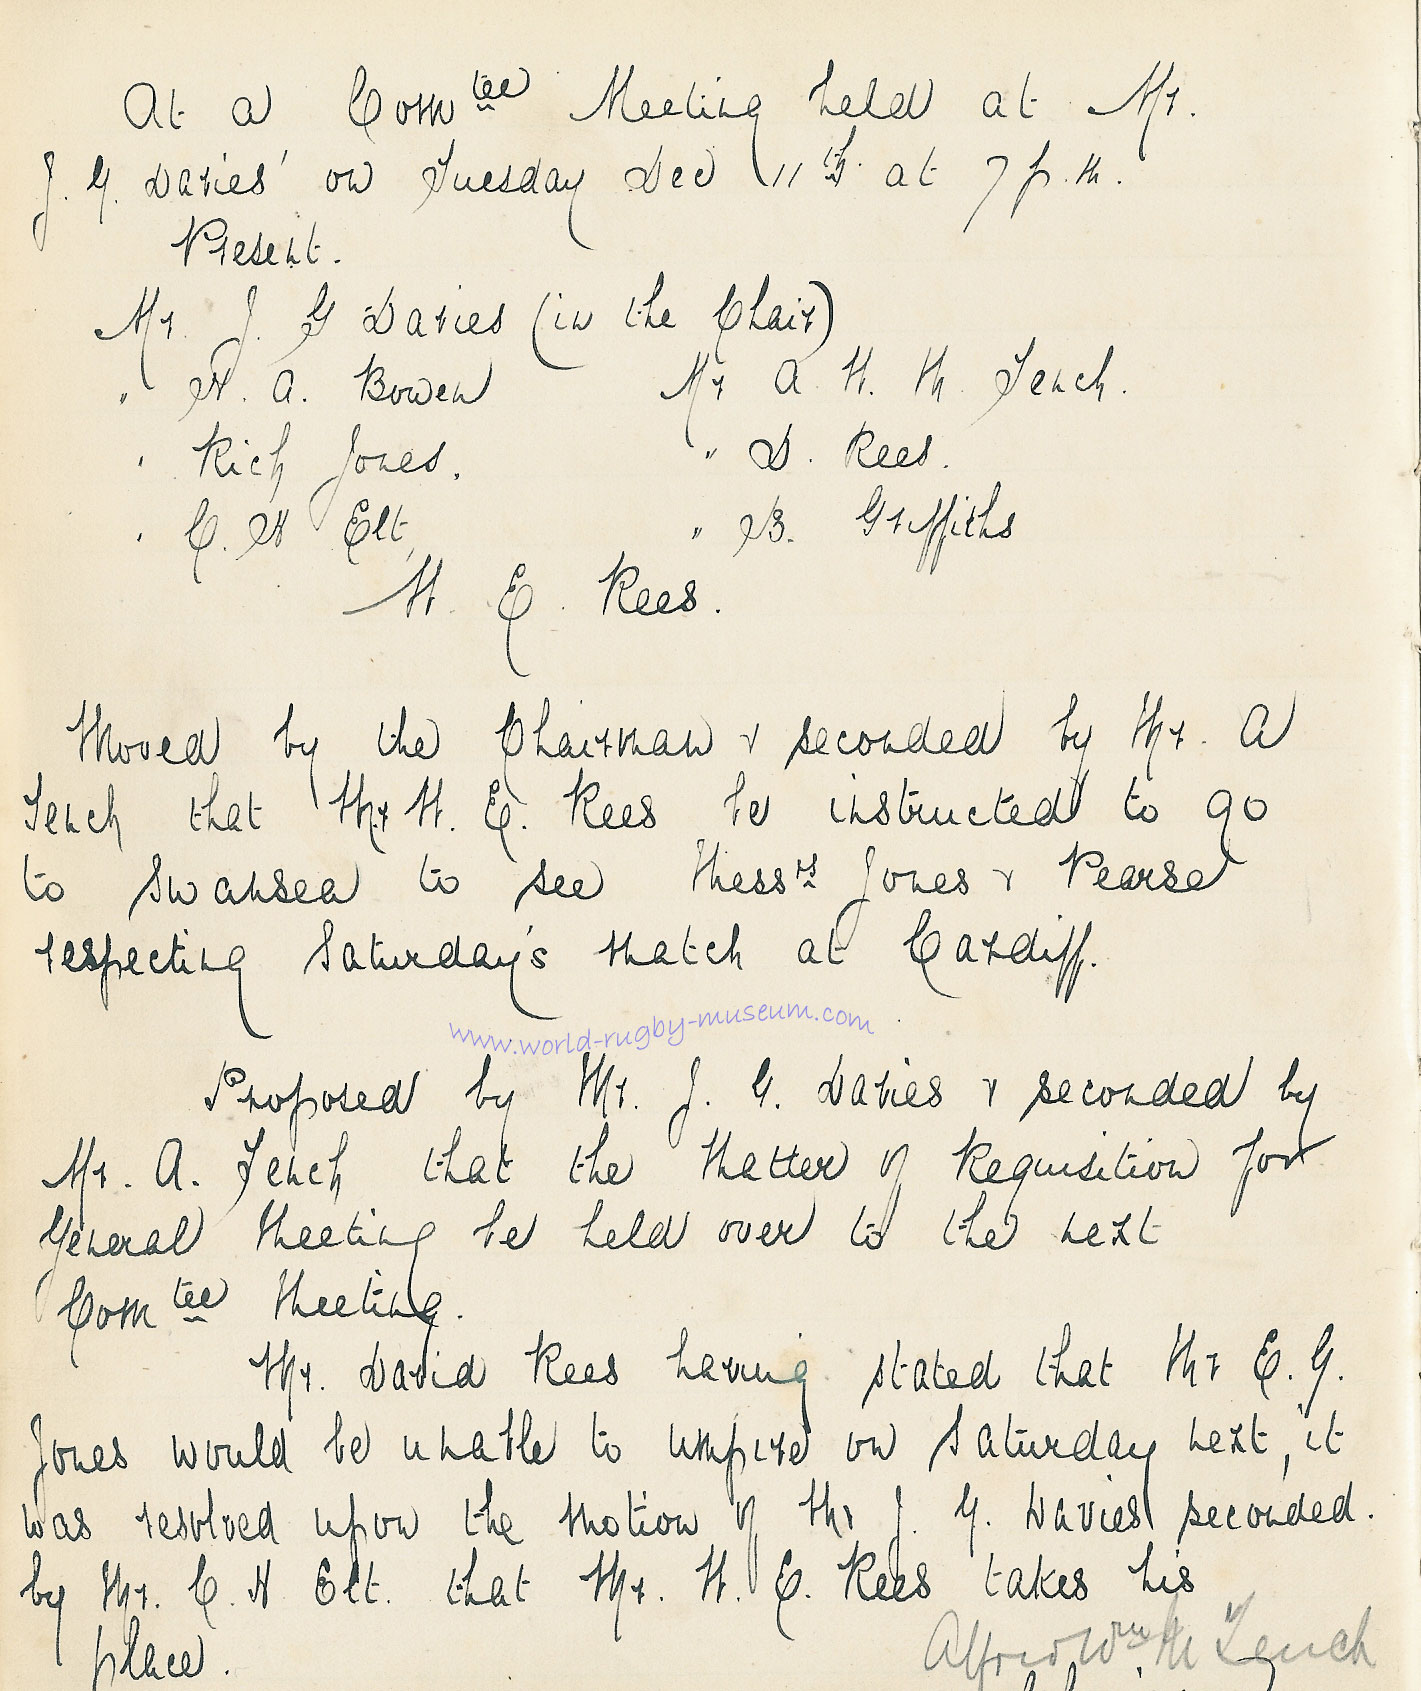 At a Com tee Meeting held at Mr.
J. G. Davies' on Tuesday Dec 11th. at 7 p.m.
Present.
Mr. J. G Davies (in the Chair)
" N. A. Bowen Mr A. W. M. Tench.
" Rich Jones. " D. Rees.
" C. N Elt " B. Griffiths
W. E. Rees.
Moved by the Chairman & seconded by Mr. A
Tench that Mr W. E. Rees be instructed to go
to Swansea to see Messrs Jones & Pearse
respecting Saturday's match at Cardiff.
www.world-rugby-museum.com
Proposed by Mr. J. G. Davies & seconded by
Mr. A. Tench that the Matter of Requisition for
General Meeting be held over to the next
Com tee Meeting.
Mr. David Rees having stated that Mr E. G.
Jones would be unable to umpire on Saturday next, it
was resolved upon the motion of Mr J. G. Davies seconded.
by Mr. C. N Elt. that Mr. W. E. Rees takes his
place. Alfred Wm M Tench